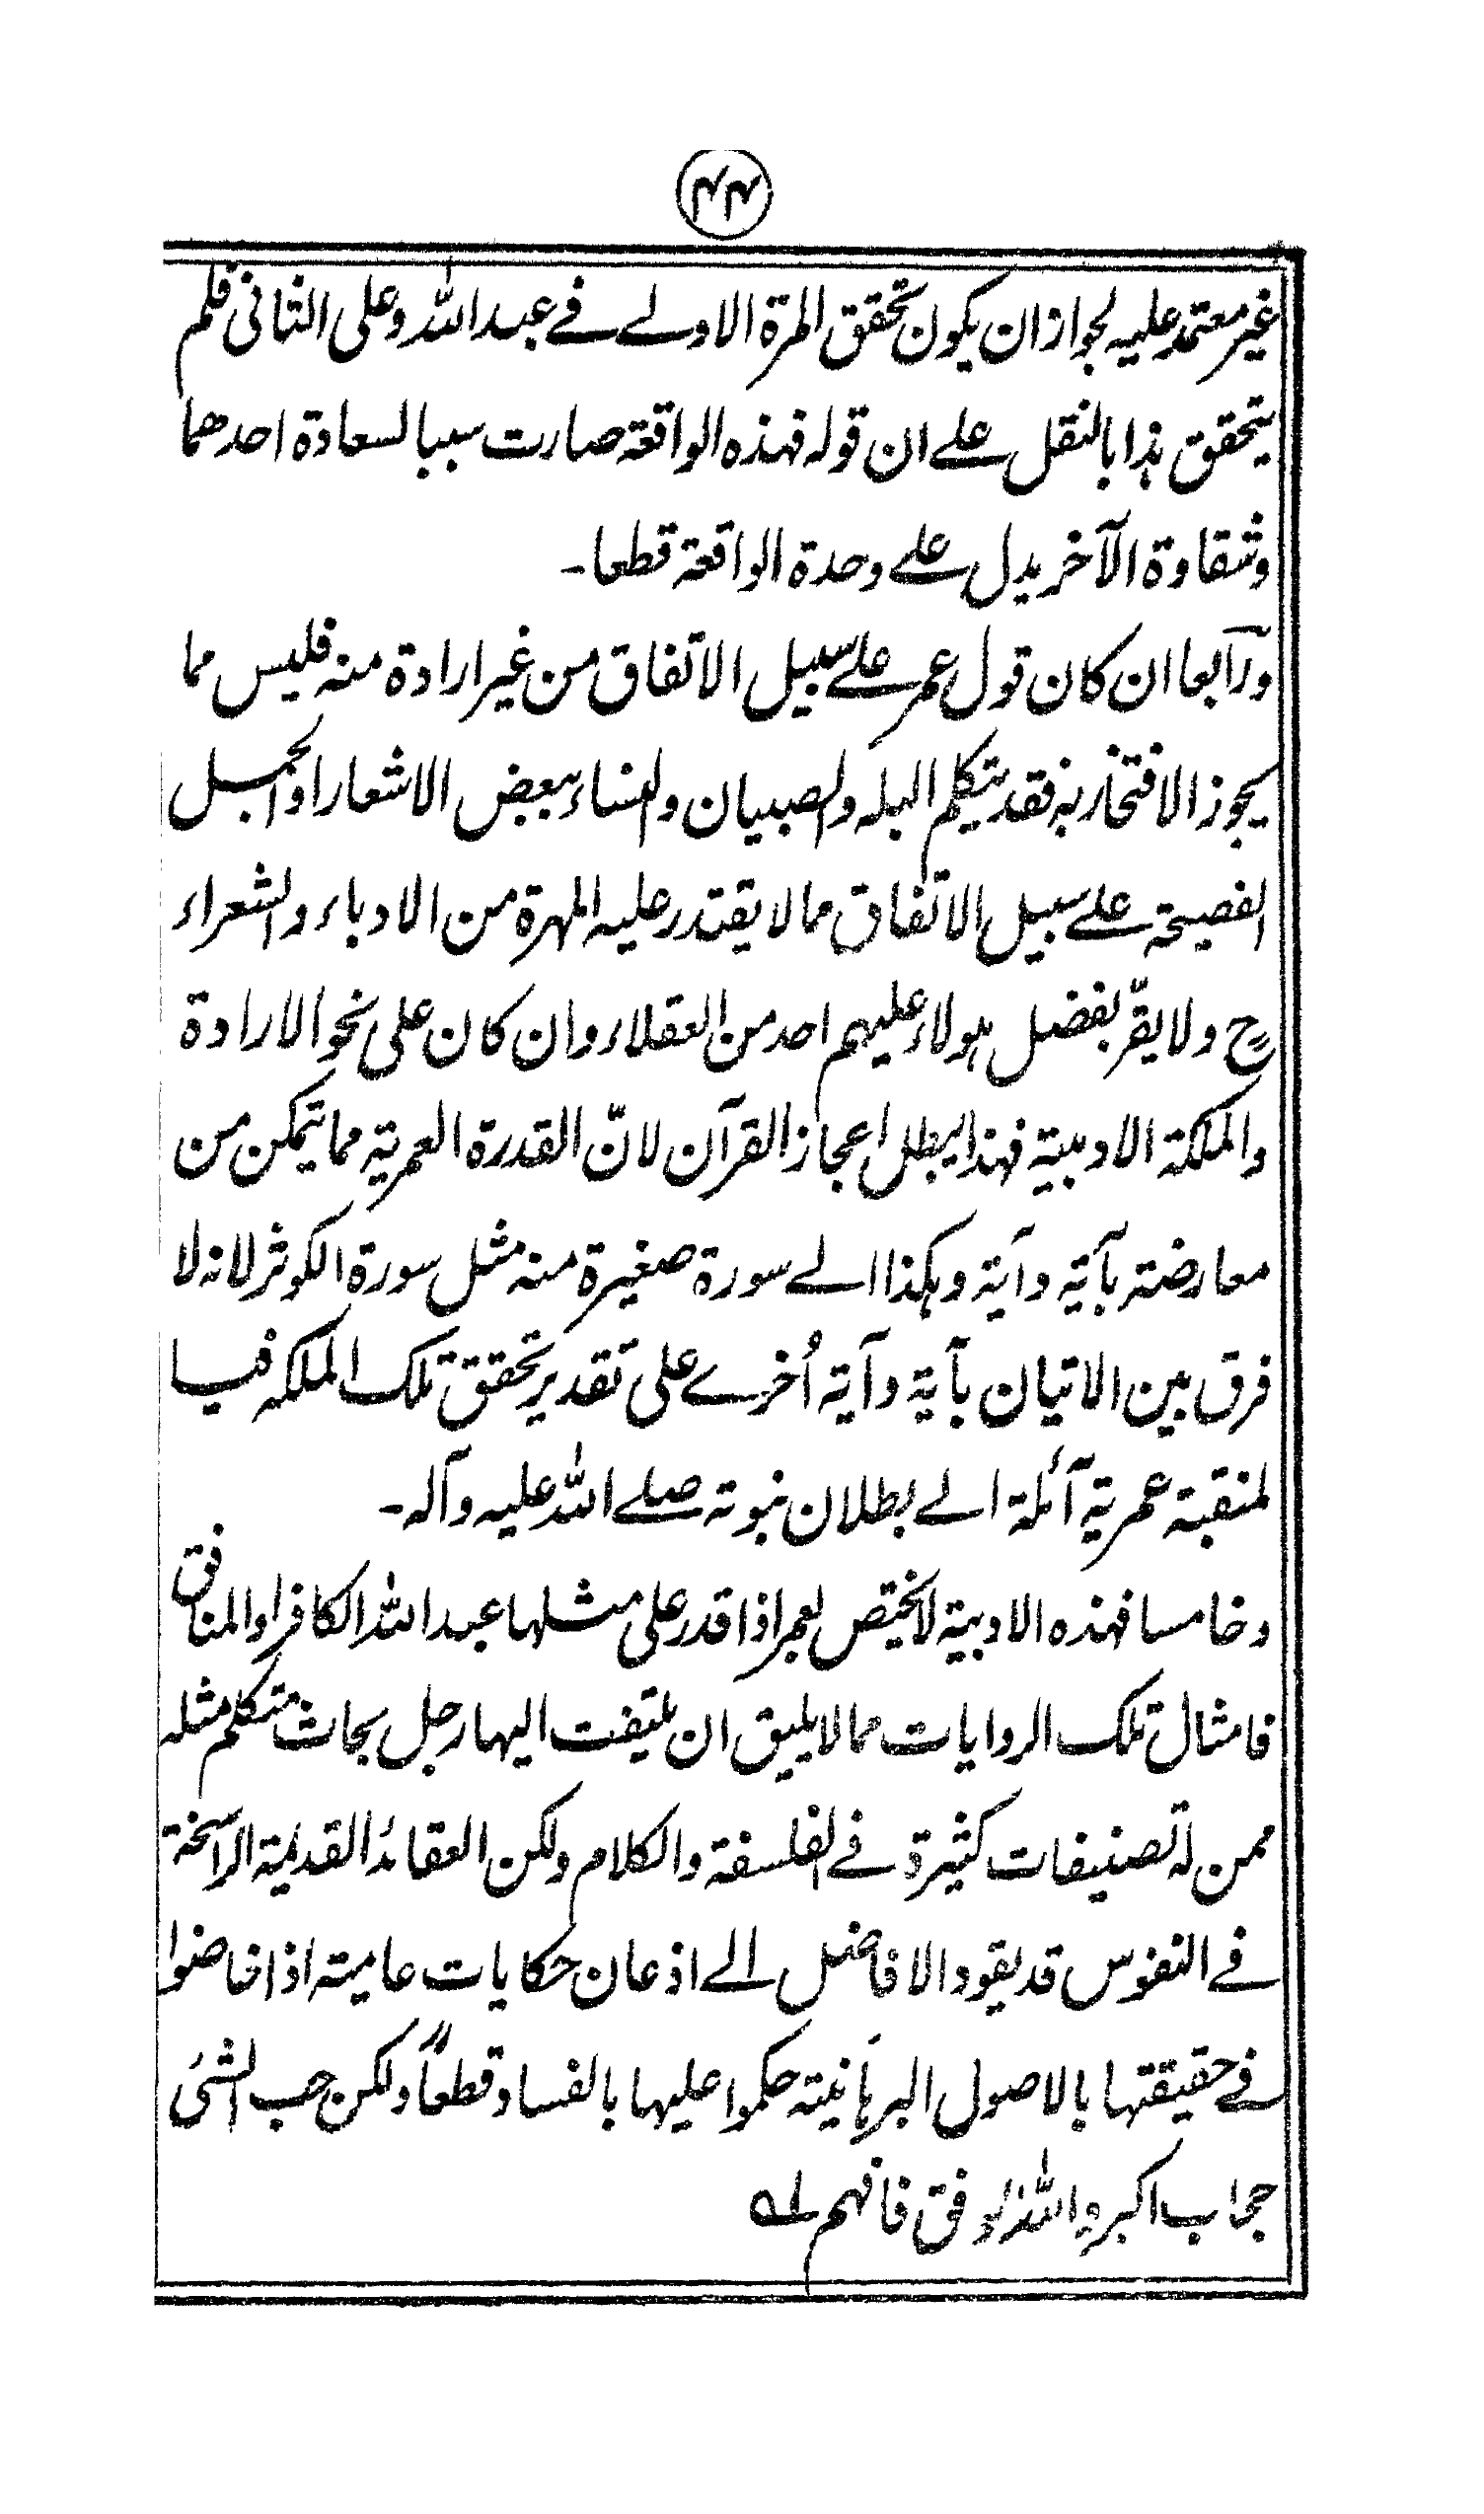 ۴۴
غير معتمد عليه لجواز ان يكون تحقق المرة الاولے فے عبد الله وعلى الثانى فلم
يتحقق هذا بالنقل علے ان قوله فهذه الواقعة صارت سببا لسعادة احدهما
وشقاوة الآخر يدل علے وحدة الواقعة قطعا۔
ورابعا ان كان قول عمر علے سبيل الاتفاق من غير ارادة منه فليس مما
يجوز الافتخار به فقد يتكلم البله والصبيان والنساء ببعض الاشعار او الجمل
الفصيحة علے سبيل الاتفاق مالا يقتدر عليه المهرة من الادباء والشعراء
ح ولا يقرّ بفضل هولاء عليهم احد من العقلاء وان كان على نحو الارادة
والملكة الادبية فهذا يبطل اعجاز القرآن لانّ القدرة العمرية مما يتمكن من
معارضته بآية وآية وهكذا الے سورة صغيرة منه مثل سورة الكوثر لانه لا
فرق بين الاتيان بآية وآية اُخرے على تقدير تحقق تلك الملكه فيا
لمنقبة عمرية آئلة الے بطلان نبوته صلے الله عليه وآله۔
وخامسا فهذه الادبية لا يختص لعمر اذا قدر على مثلها عبد الله الكافر او المنافق
فامثال تلك الروايات مما لا يليق ان يلتفت اليها رجل بحاث متكلم مثله
ممن له تصنيفات كثيرة فے الفلسفة والكلام ولكن العقائد القديمة الراسخة
فے النفوس قد يقود الافاضل الے اذعان حكايات عامية اذا خاضوا
فے حقيقتها بالاصول البرهانية حكموا عليها بالفساد قطعاً ولكن حب الشئ
حجاب اكبر والله الموفق فافهم